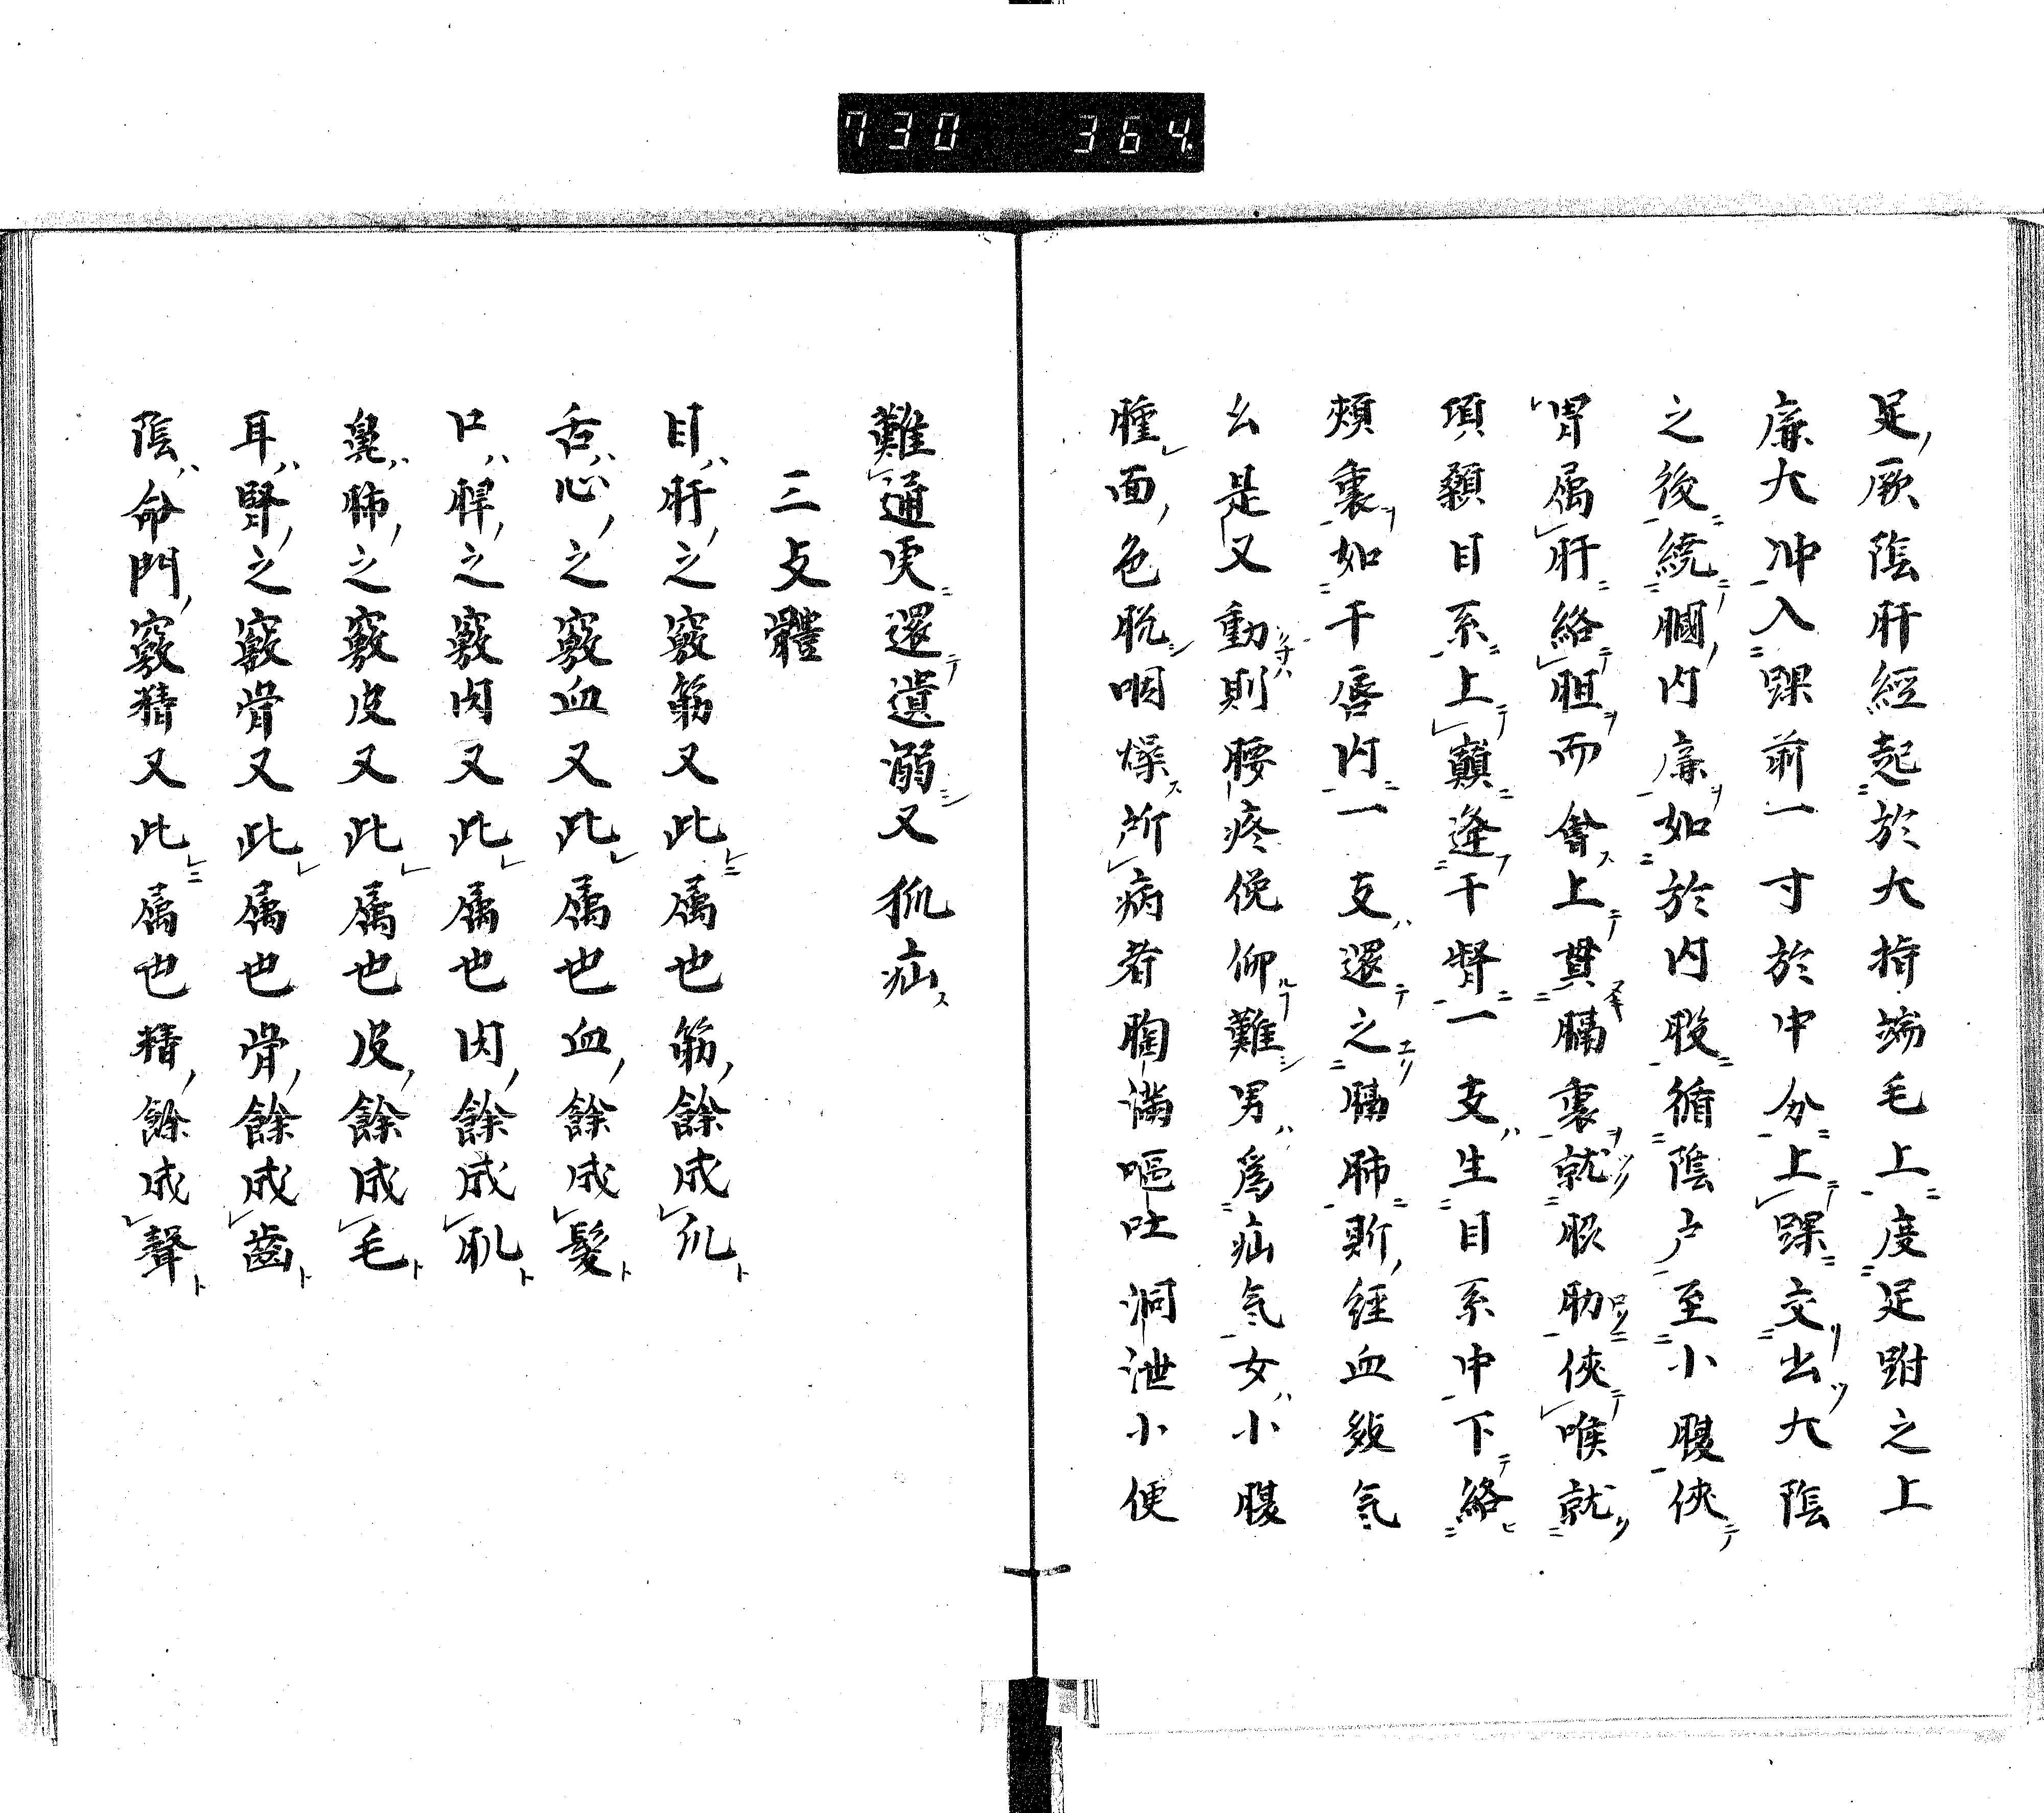 730 364
足厥陰肝經起於大指端毛上度足跗之上
廉大冲入踝前一寸於中分上踝交出大陰
之後繞膕内廉如於内股循陰户至小腹俠
胃属肝絡胆而會上貫膈裏就脇肋俠喉就
項顙目系上巔逢干督一支生目系中下絡
頬裏如干唇内一支還之膈肺斯經血多气
么是又動則腰疼俛仰難男為疝气女小腹
腫面色脱咽燥所病者胸滿嘔吐洞泄小便
難通更還遺溺又狐疝
三支體
目肝之竅筋又此属也筋餘成爪
舌心之竅血又此属也血餘成髮
口脾之竅肉又此属也肉餘成肌
鼻肺之竅皮又此属也皮餘成毛
耳腎之竅骨又此属也骨餘成齒
陰命門竅精又此属也精餘成聲